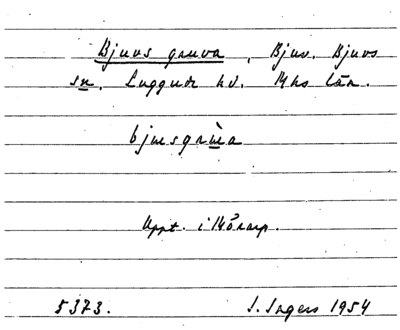 Bjuvs gruva, Bjuv. Bjuvs
sn. Luggude hd. Mhs län.
bjusgruva
Uppt. i Mörarp.
5373. I. Ingers 1954